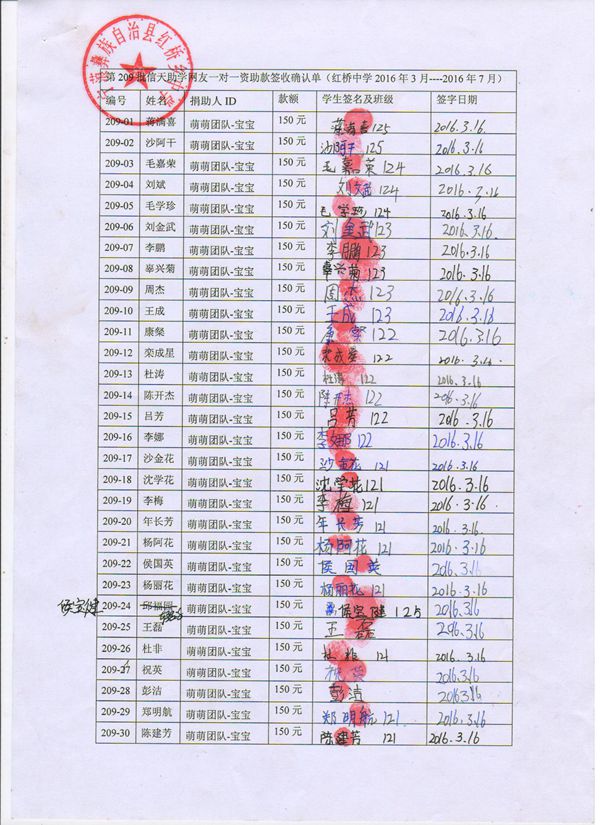 宁蒗彝族自治县红桥乡中学
第 209 批信天助学网友一对一资助款签收确认单（红桥中学 2016 年 3 月----2016 年 7 月）
编号 姓名 捐助人 ID 款额 学生签名及班级 签字日期
209-01 蒋满喜 萌萌团队-宝宝 150 元 蒋满喜 125 2016.3.16
209-02 沙阿干 萌萌团队-宝宝 150 元 沙阿干 125 2016.3.16
209-03 毛嘉荣 萌萌团队-宝宝 150 元 毛嘉荣 124 2016.3.16
209-04 刘斌 萌萌团队-宝宝 150 元 刘斌 124 2016.3.16
209-05 毛学珍 萌萌团队-宝宝 150 元 毛学珍 124 2016.3.16
209-06 刘金武 萌萌团队-宝宝 150 元 刘金武 123 2016.3.16
209-07 李鹏 萌萌团队-宝宝 150 元 李鹏 123 2016.3.16
209-08 辜兴菊 萌萌团队-宝宝 150 元 辜兴菊 123 2016.3.16
209-09 周杰 萌萌团队-宝宝 150 元 周杰 123 2016.3.16
209-10 王成 萌萌团队-宝宝 150 元 王成 123 2016.3.16
209-11 康粲 萌萌团队-宝宝 150 元 康粲 122 2016.3.16
209-12 栾成星 萌萌团队-宝宝 150 元 栾成星 122 2016.3.16
209-13 杜涛 萌萌团队-宝宝 150 元 杜涛 122 2016.3.16
209-14 陈开杰 萌萌团队-宝宝 150 元 陈开杰 122 2016.3.16
209-15 吕芳 萌萌团队-宝宝 150 元 吕芳 122 2016.3.16
209-16 李娜 萌萌团队-宝宝 150 元 李娜 122 2016.3.16
209-17 沙金花 萌萌团队-宝宝 150 元 沙金花 121 2016.3.16
209-18 沈学花 萌萌团队-宝宝 150 元 沈学花 121 2016.3.16
209-19 李梅 萌萌团队-宝宝 150 元 李梅 121 2016.3.16
209-20 年长芳 萌萌团队-宝宝 150 元 年长芳 121 2016.3.16
209-21 杨阿花 萌萌团队-宝宝 150 元 杨阿花 121 2016.3.16
209-22 侯国英 萌萌团队-宝宝 150 元 侯国英 2016.3.16
209-23 杨丽花 萌萌团队-宝宝 150 元 杨丽花 121 2016.3.16
侯宝健 209-24 萌萌团队-宝宝 150 元 侯宝健 125 2016.3.16
209-25 王磊 萌萌团队-宝宝 150 元 王磊 2016.3.16
209-26 杜非 萌萌团队-宝宝 150 元 杜非 121 2016.3.16
209-27 祝英 萌萌团队-宝宝 150 元 祝英 2016.3.16
209-28 彭洁 萌萌团队-宝宝 150 元 彭洁 2016.3.16
209-29 郑明航 萌萌团队-宝宝 150 元 郑明航 121 2016.3.16
209-30 陈建芳 萌萌团队-宝宝 150 元 陈建芳 121 2016.3.16